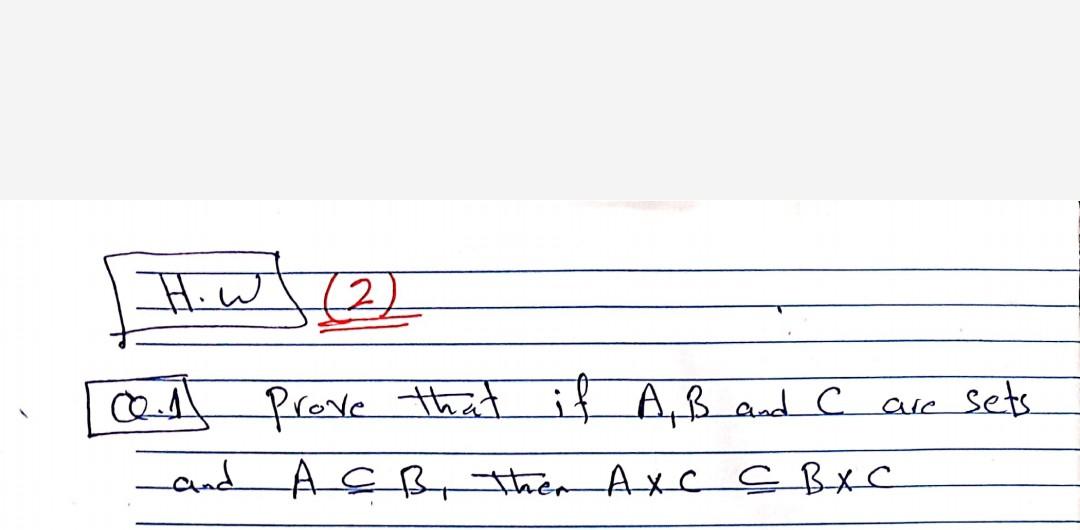 H.W (2)
Q.1 Prove that if A, B and C are sets
and A ⊆ B, then A x C ⊆ B x C